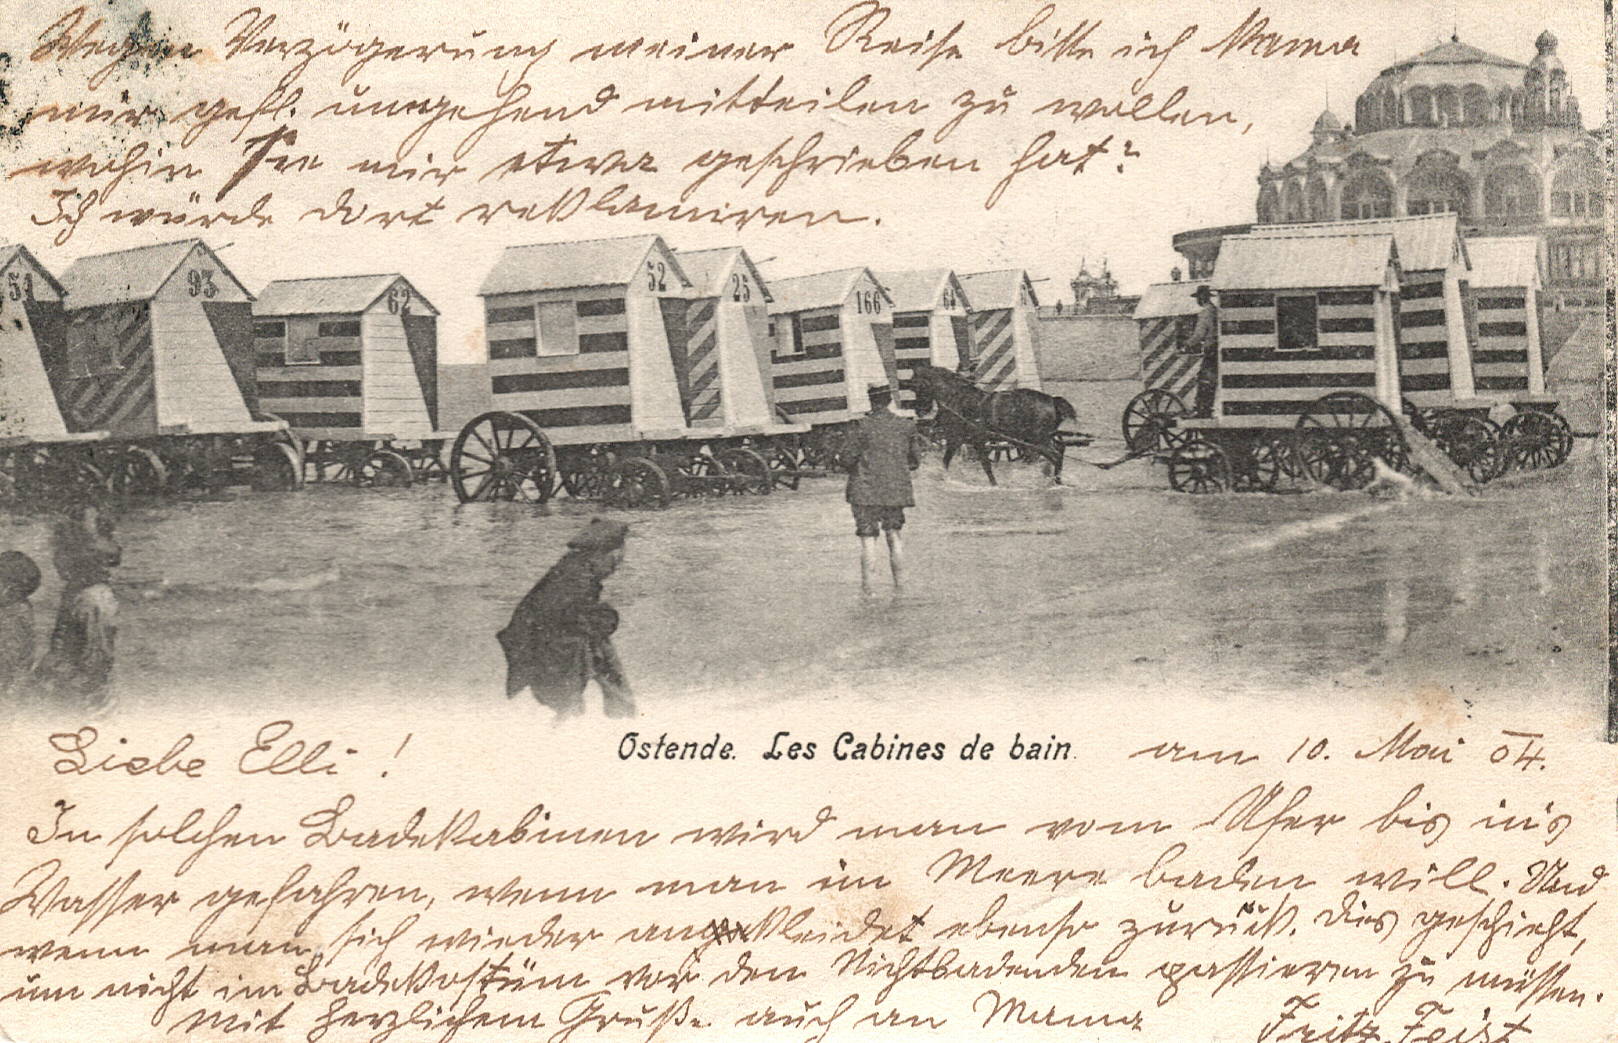 Wegen Verzögerung meiner Reise bitte ich Mama
mir gefl. umgehend mitteilen zu wollen,
wohin Sie mir etwa geschrieben hat?
Ich würde dort reklamiren.
51
93
62
52
25
166
64
Ostende. Les Cabines de bain.
am 10. Mai 04.
Liebe Elli!
In solchen Badekabinen wird man vom Ufer bis in's
Wasser gefahren, wenn man im Meere baden will. Und
wenn man sich wieder ankleidet ebenso zurück. Dies geschieht,
um nicht im Badekostüm vor den Nichtbadenden passieren zu müssen.
Mit herzlichem Gruße auch an Mama
Fritz Feist